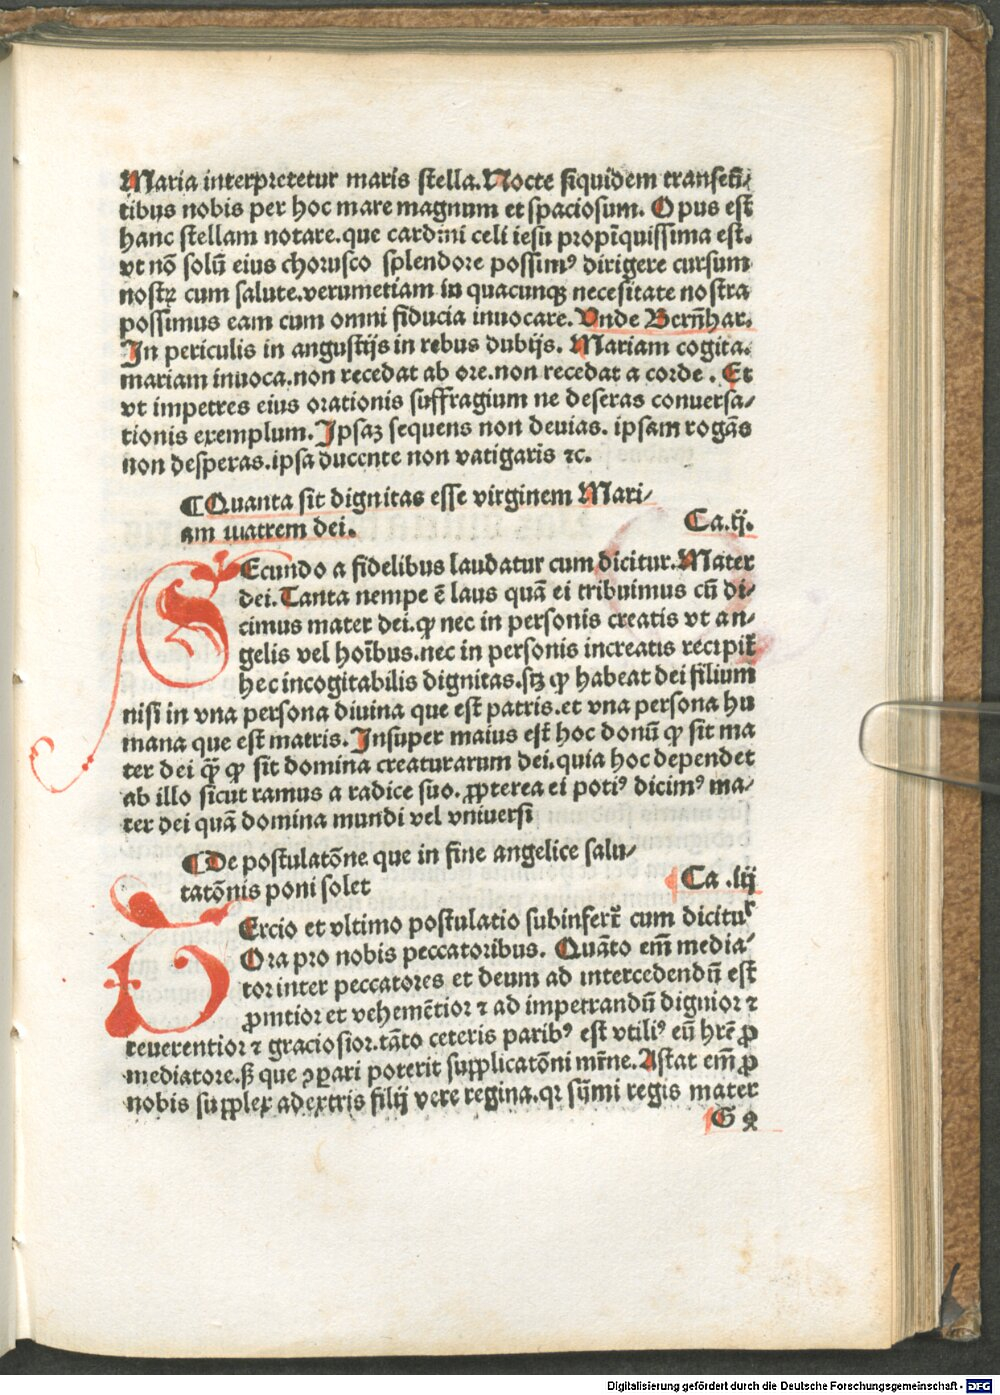 Maria interpretetur maris stella. Nocte siquidem transeū⸗
tibus nobis per hoc mare magnum et spaciosum. Opus est
hanc stellam notare. que cardini celi iesu propīquissima est.
vt nō solū eius chorusco splendore possimꝰ dirigere cursum
nostrꝝ cum salute. verumetiam in quacunqꝫ necesitate nostra
possimus eam cum omni fiducia inuocare. Vnde Bern̄har.
In periculis in angustijs in rebus dubijs. Mariam cogita.
mariam inuoca. non recedat ab ore. non recedat a corde. Et
vt impetres eius orationis suffragium ne deseras conuersa⸗
tionis exemplum. Ipsaꝫ sequens non deuias. ipsam rogās
non desperas. ipsa ducente non vatigaris ⁊c.
¶Quanta sit dignitas esse virginem Mari⸗
am matrem dei.
Ca. ij.
SEcundo a fidelibus laudatur cum dicitur. Mater
dei. Tanta nempe ē laus quā ei tribuimus cū di⸗
cimus mater dei. ꝙ nec in personis creatis vt an⸗
gelis vel hoībus. nec in personis increatis recipit̄
hec incogitabilis dignitas. sꝫ ꝙ habeat dei filium
nisi in vna persona diuina que est patris. et vna persona hu
mana que est matris. Insuper maius est hoc donū ꝙ sit ma
ter dei ꝙ̄ ꝙ sit domina creaturarum dei. quia hoc dependet
ab illo sicut ramus a radice suo. ꝓpterea ei potiꝰ dicimꝰ ma⸗
ter dei quā domina mundi vel vniuersi
¶De postulatōne que in fine angelice salu⸗
tatōnis poni solet
Ca. iij
TErcio et vltimo postulatio subinfert̄ cum dicitur
Ora pro nobis peccatoribus. Quāto em̄ media⸗
tor inter peccatores et deum ad intercedendū est
ꝓmtior et vehemētior ⁊ ad impetrandū dignior ⁊
reuerentior ⁊ graciosior. tāto ceteris paribꝰ est vtiliꝰ eū hr̄e ꝓ
mediatore. sꝫ que ꝯꝑari poterit supplicatōni mr̄ne. Astat em̄ ꝓ
nobis supplex ad extris filij vere regina. qꝛ sūmi regis mater
G 2
Digitalisierung gefördert durch die Deutsche Forschungsgemeinschaft - DFG